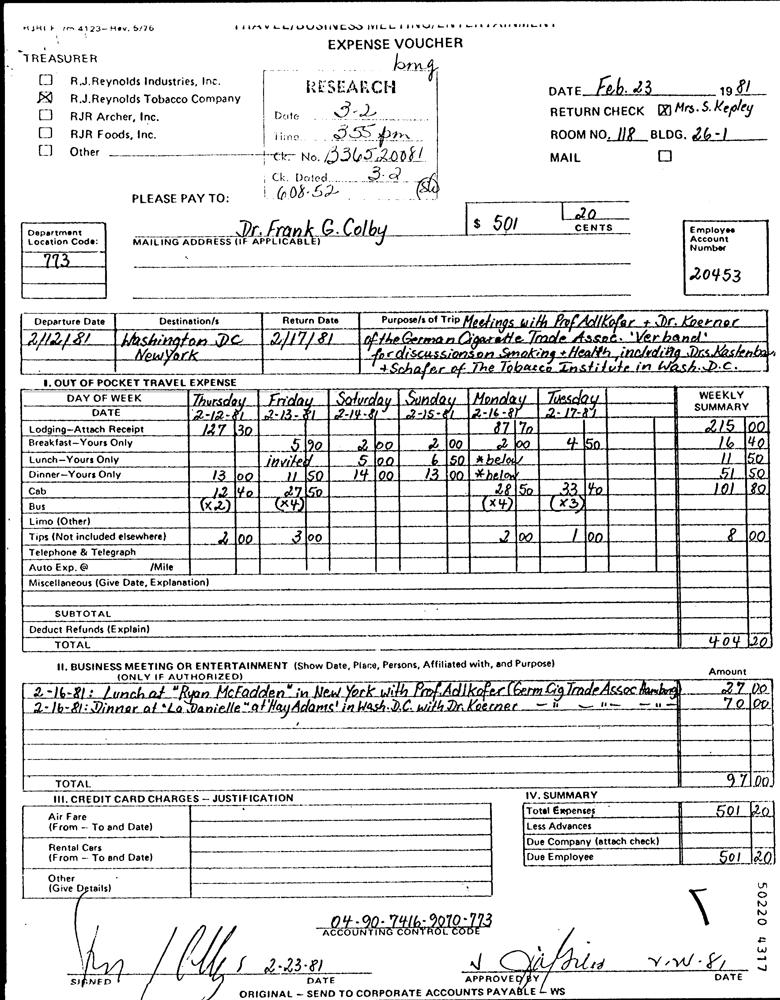 4123-Rev. 5/76
TRAVEL/BUSINESS MEETING/ENTERTAINMENT
EXPENSE VOUCHER
TREASURER
bmg
R.J.Reynolds Industries, Inc.
☒ R.J.Reynolds Tobacco Company
RJR Archer, Inc.
RJR Foods, Inc.
Other
RESEARCH
Date 3-2
Time 355 pm
Ck. No. B36520081
Ck. Dated 3-2
608.52
DATE Feb. 23 1981
RETURN CHECK ☒ Mrs. S. Kepley
ROOM NO. 118 BLDG. 26-1
MAIL
PLEASE PAY TO:
Dr. Frank G. Colby
$ 501 20 CENTS
MAILING ADDRESS (IF APPLICABLE)
Department Location Code:
773
Employee Account Number
20453
Departure Date Destination/s Return Date Purpose/s of Trip Meetings with Prof Adlkofer + Dr. Koerner
2/12/81 Washington DC 2/17/81 of the German Cigarette Trade Assoc. 'Verband'
New York for discussions on Smoking + Health, including Drs Kastenbaum
+ Schafer of The Tobacco Institute in Wash. D.C.
I. OUT OF POCKET TRAVEL EXPENSE
DAY OF WEEK Thursday Friday Saturday Sunday Monday Tuesday WEEKLY SUMMARY
DATE 2-12-81 2-13-81 2-14-81 2-15-81 2-16-81 2-17-81
Lodging-Attach Receipt 127 30 87 70 215 00
Breakfast-Yours Only 5 90 2 00 2 00 2 00 4 50 16 40
Lunch-Yours Only invited 5 00 6 50 *below 11 50
Dinner-Yours Only 13 00 11 50 14 00 13 00 *below 51 50
Cab 12 40 27 50 28 50 33 40 101 80
Bus (x2) (x4) (x4) (x3)
Limo (Other)
Tips (Not included elsewhere) 2 00 3 00 2 00 1 00 8 00
Telephone & Telegraph
Auto Exp. @ /Mile
Miscellaneous (Give Date, Explanation)
SUBTOTAL
Deduct Refunds (Explain)
TOTAL 404 20
II. BUSINESS MEETING OR ENTERTAINMENT (Show Date, Place, Persons, Affiliated with, and Purpose)
(ONLY IF AUTHORIZED)
Amount
2-16-81: Lunch at "Ryan McFadden" in New York with Prof. Adlkofer (Germ Cig Trade Assoc Hamburg) 27 00
2-16-81: Dinner at "La Danielle" at 'Hay Adams' in Wash. D.C. with Dr. Koerner — " — — " — — " — 70 00
TOTAL 97 00
III. CREDIT CARD CHARGES – JUSTIFICATION
Air Fare
(From – To and Date)
Rental Cars
(From – To and Date)
Other
(Give Details)
IV. SUMMARY
Total Expenses 501 20
Less Advances
Due Company (attach check)
Due Employee 501 20
50220 4317
04-90-7416-9070-773
ACCOUNTING CONTROL CODE
2-23-81
SIGNED DATE APPROVED BY DATE
ORIGINAL – SEND TO CORPORATE ACCOUNTS PAYABLE – WS